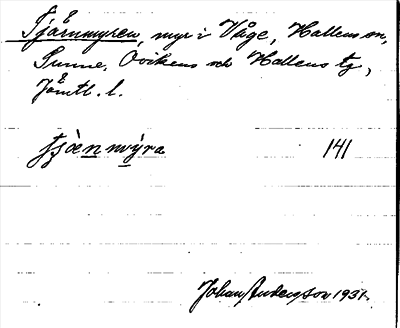 Tjårnmyren, myr i Våge, Hallens sn,
Sunne, Ovikens och Hallens tg,
Jämtl. l.
tjὰen mýra 141
Johan Anderson 1931.